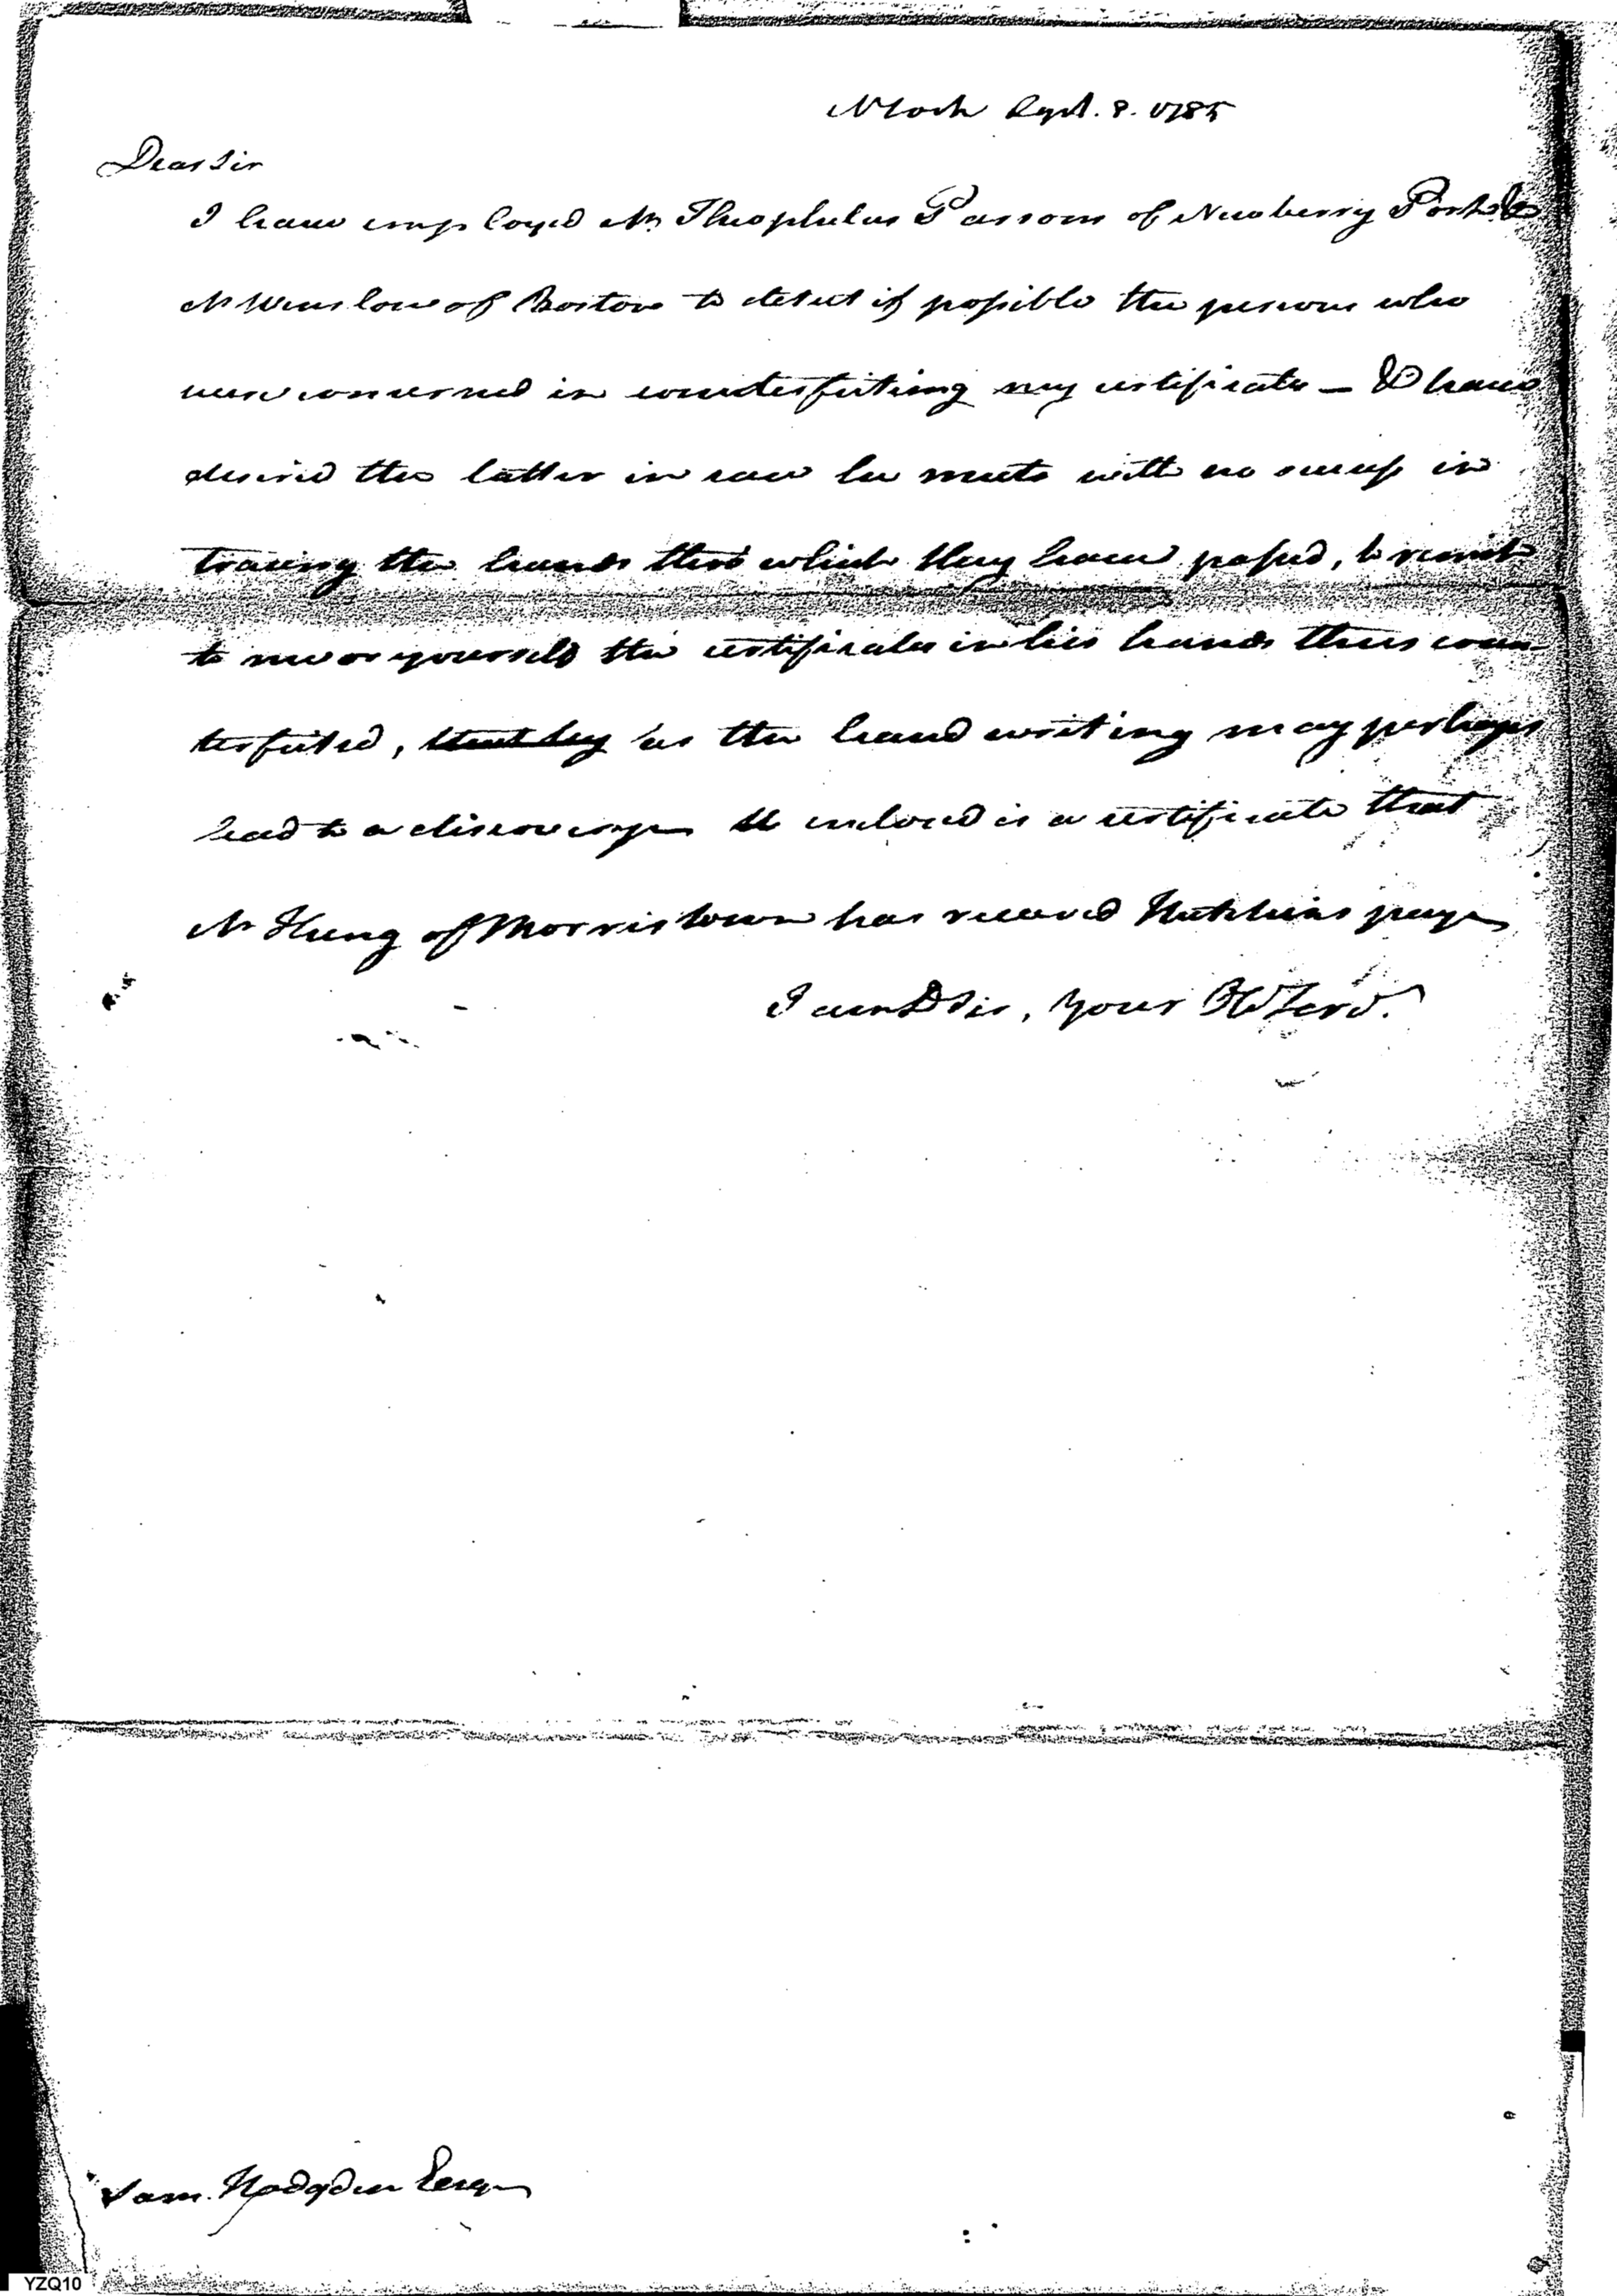 NYork Sept. 8. 1785
Dear Sir
I have employed Mr Theophulus Parsons of Newberry Port &
Mr Winslow of Boston to detect if possible the persons who
were concerned in counterfeiting my certificates — & have
desired the latter in case he meets with no success in
tracing the hands thro which they have passed, to remit
to me or yourself the certificates in his hands thus coun-
terfeited, as the hand writing may perhaps
lead to a discovery inclosed is a certificate that
Mr of Morristown has received Hutchins pay
I am D Sir, your Ob Serv.
Sam. Hodgdon Esqr
YZQ10